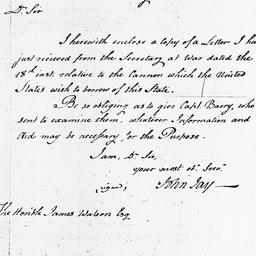 Dr Sir
I herewith enclose a Copy of a Letter I ha
just received from the Secretary at War dated the
18th inst. relative to the Cannon which the United
States wish to borrow of this State.
Be so obliging as to give Capt Barry, who
sent to examine them, whatever Information and
Aid may be necessary for the Purpose.
I am, Dr Sir,
your most obt. Servt.
(signed) John Jay
The Honble James Watson Esq.